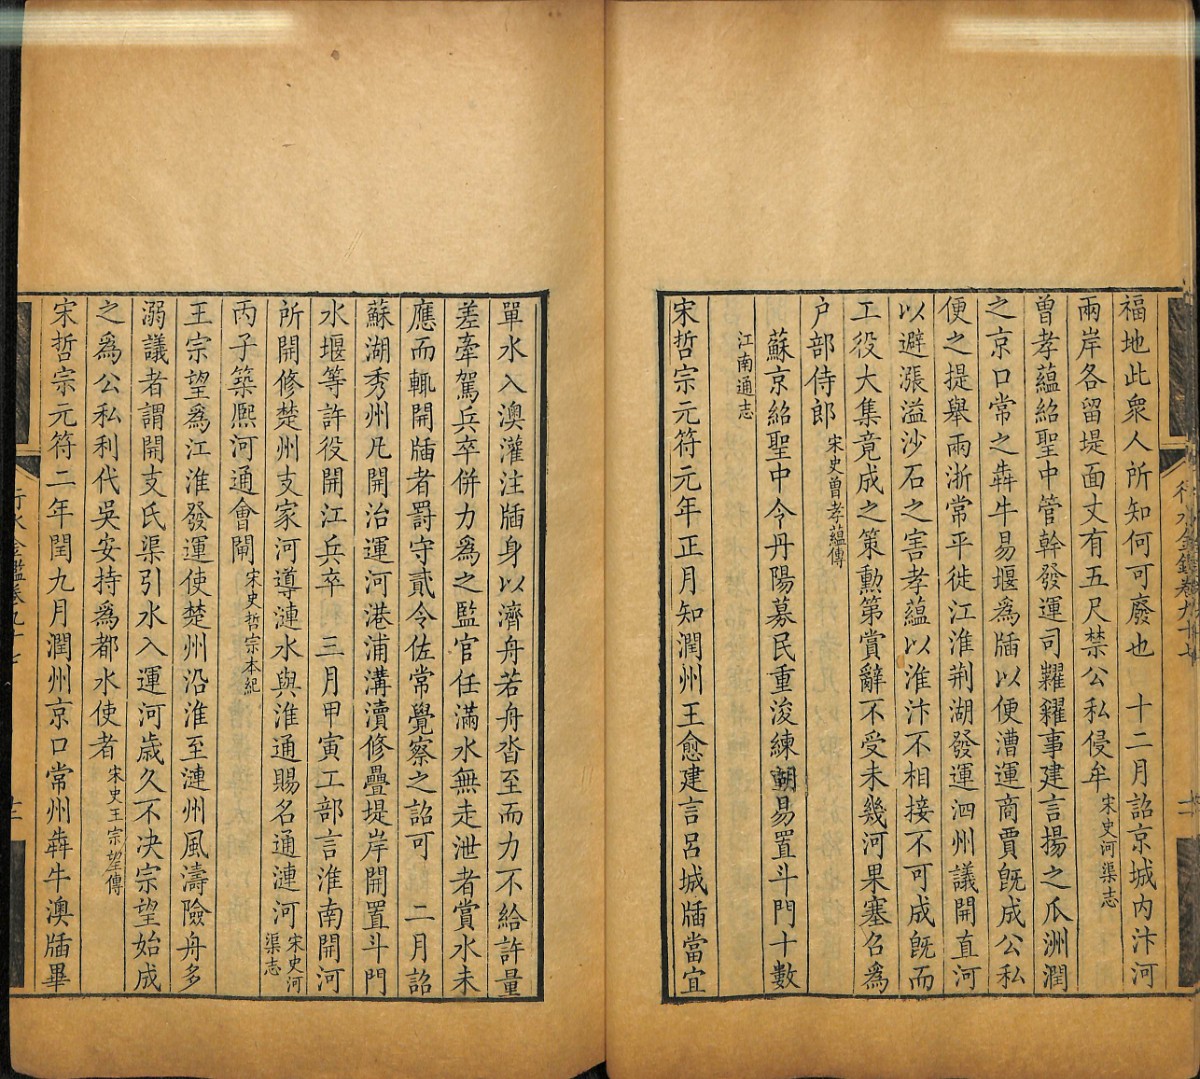 福地此衆人所知何可廢也　十二月詔京城内汴河
兩岸各留堤面丈有五尺禁公私侵牟宋史河渠志
曾孝蘊紹聖中管幹發運司糶糴事建言揚之瓜洲潤
之京口常之犇牛易堰爲牐以便漕運商賈旣成公私
便之提舉兩浙常平徙江淮荆湖發運泗州議開直河
以避漲溢沙石之害孝蘊以淮汴不相接不可成旣而
工役大集竟成之策勳第賞辭不受未幾河果塞召爲
户部侍郎宋史曾孝蘊傳
蘇京紹聖中令丹陽募民重浚練湖易置斗門十數
江南通志
宋哲宗元符元年正月知潤州王愈建言呂城牐當宜
單水入澳灌注牐身以濟舟若舟沓至而力不給許量
差牽駕兵卒併力爲之監官任滿水無走泄者賞水未
應而輒開牐者罰守貳令佐常覺察之詔可　二月詔
蘇湖秀州凡開治運河港浦溝瀆修疊堤岸開置斗門
水堰等許役開江兵卒　三月甲寅工部言淮南開河
所開修楚州支家河導漣水與淮通賜名通漣河宋史河渠志
丙子築熙河通會關宋史哲宗本紀
王宗望爲江淮發運使楚州沿淮至漣州風濤險舟多
溺議者謂開支氏渠引水入運河歲久不决宗望始成
之爲公私利代吳安持爲都水使者宋史王宗望傳
宋哲宗元符二年閏九月潤州京口常州犇牛澳牐畢
行水金鑑卷九十七